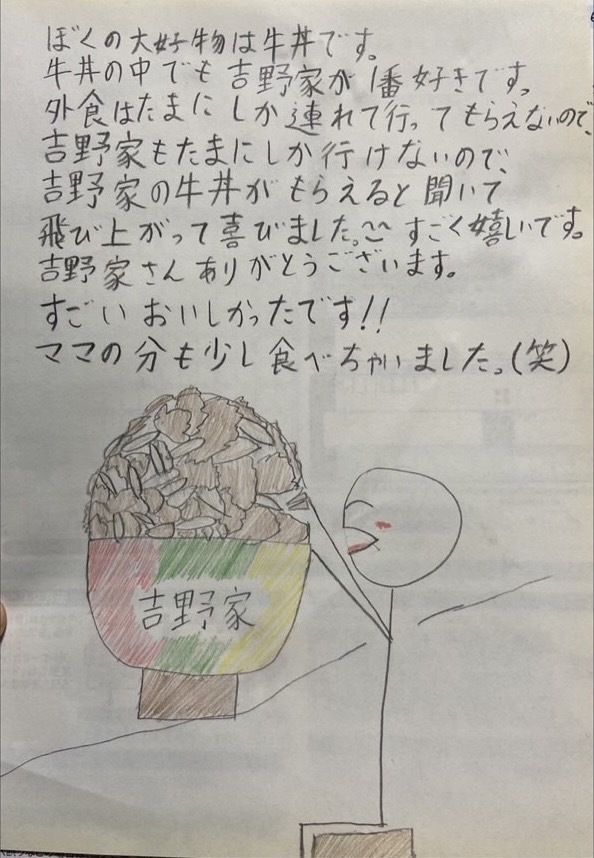 ぼくの大好物は牛丼です。
牛丼の中でも吉野家が1番好きです。
外食はたまにしか連れて行ってもらえないので、
吉野家もたまにしか行けないので、
吉野家の牛丼がもらえると聞いて
飛び上がって喜びました。^^ すごく嬉しいです。
吉野家さんありがとうございます。
すごいおいしかったです!!
ママの分も少し食べちゃいました。(笑)
吉野家